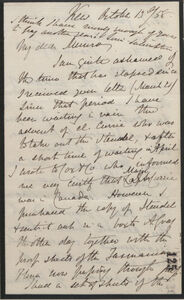 Kew October 13th/58
I think I have money enough of yours
to pay another year's Linn subscription
My dear Munro
I am quite ashamed of
the time that has elapsed since
I received your letter (March 21)
Since that period I have
been waiting in vain the
advent of Col. Currie who was
to take out the Steudel, & after
a short time of waiting in April
I wrote to Co who informed
me very civilly that Currie
was in Canada. However I
purchased the copy of Steudel
sent it out in a box to A Gray
the other day together with the
proof sheets of the Tasmanian
Flora now passing through
I had a set of sheets of the